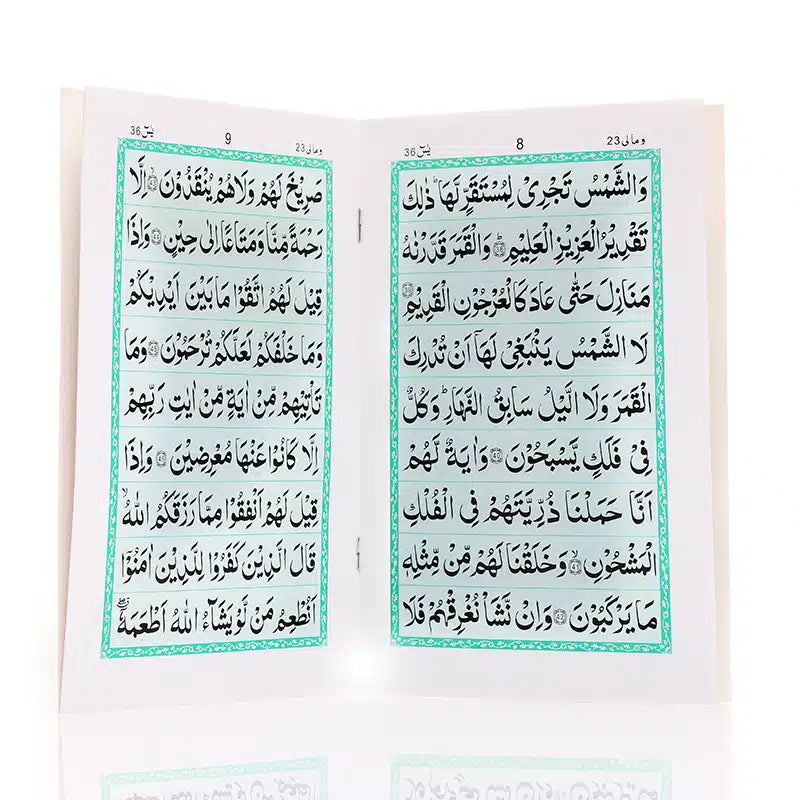 ومالی 23
8
یٰسٓ 36
وَالشَّمْسُ تَجْرِیْ لِمُسْتَقَرٍّ لَّهَا ؕ ذٰلِكَ
تَقْدِیْرُ الْعَزِیْزِ الْعَلِیْمِ ؕ﴿38﴾ وَالْقَمَرَ قَدَّرْنٰهُ
مَنَازِلَ حَتّٰی عَادَ كَالْعُرْجُوْنِ الْقَدِیْمِ ﴿39﴾
لَا الشَّمْسُ یَنْۢبَغِیْ لَهَاۤ اَنْ تُدْرِكَ
الْقَمَرَ وَلَا الَّیْلُ سَابِقُ النَّهَارِ ؕ وَكُلٌّ
فِیْ فَلَكٍ یَّسْبَحُوْنَ ﴿40﴾ وَاٰیَةٌ لَّهُمْ
اَنَّا حَمَلْنَا ذُرِّیَّتَهُمْ فِی الْفُلْكِ
الْمَشْحُوْنِ ۙ﴿41﴾ وَخَلَقْنَا لَهُمْ مِّنْ مِّثْلِهٖ
مَا یَرْكَبُوْنَ ﴿42﴾ وَاِنْ نَّشَاْ نُغْرِقْهُمْ فَلَا
ومالی 23
9
یٰسٓ 36
صَرِیْخَ لَهُمْ وَلَا هُمْ یُنْقَذُوْنَ ۙ﴿43﴾ اِلَّا
رَحْمَةً مِّنَّا وَمَتَاعًا اِلٰی حِیْنٍ ﴿44﴾ وَاِذَا
قِیْلَ لَهُمُ اتَّقُوْا مَا بَیْنَ اَیْدِیْكُمْ
وَمَا خَلْفَكُمْ لَعَلَّكُمْ تُرْحَمُوْنَ ﴿45﴾ وَمَا
تَاْتِیْهِمْ مِّنْ اٰیَةٍ مِّنْ اٰیٰتِ رَبِّهِمْ
اِلَّا كَانُوْا عَنْهَا مُعْرِضِیْنَ ﴿46﴾ وَاِذَا
قِیْلَ لَهُمْ اَنْفِقُوْا مِمَّا رَزَقَكُمُ اللّٰهُ ۙ
قَالَ الَّذِیْنَ كَفَرُوْا لِلَّذِیْنَ اٰمَنُوْۤا
اَنُطْعِمُ مَنْ لَّوْ یَشَآءُ اللّٰهُ اَطْعَمَهٗۤ